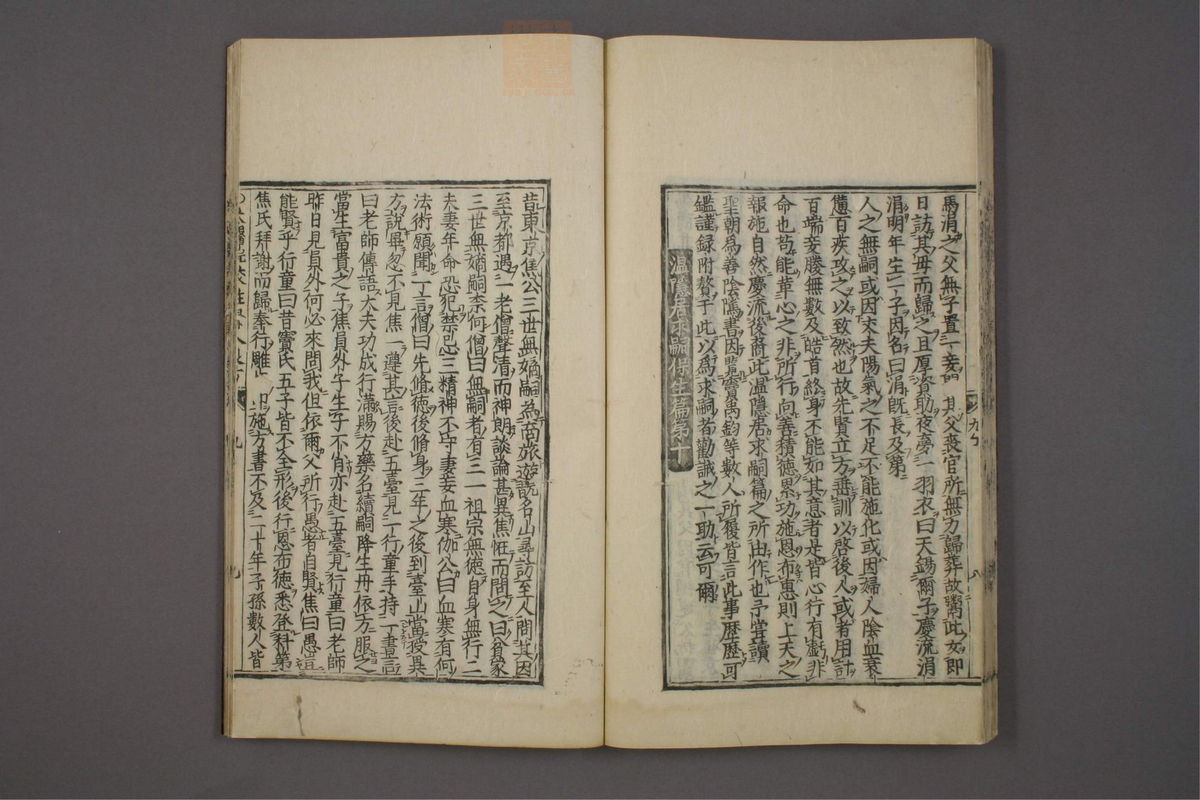 馬涓之父無子置一妾 其父喪官所無力歸葬故鬻此女即
日訪其母而歸之且厚資助夜夢一羽衣曰天錫爾子慶流涓
涓明年生一子因名曰涓既長及第
人之無嗣或因丈夫陽氣之不足不能施化或因婦人陰血衰
憊百疾攻之以致然也故先賢立方垂訓以啓後人或者用計
百端妾媵無數及皓首終身不能如其意者是皆心行有虧非
命也苟能革心之非所行向善積德累功施恩布惠則上天之
報施自然慶流後裔此溫隱居求嗣篇之所由作也予嘗讀
聖朝為善陰隲書因覽竇禹鈞等數人所履皆言此事歷歷可
鑑謹録附贅于此以為求嗣者勸誡之一助云可爾
溫隱居求嗣保生篇第十
昔東京焦公三世無嫡嗣為商旅遊說名山尋訪至人問其因
至京都遇一老僧聲清而神朗談論甚異焦恠而問之曰貧家
三世無嫡嗣柰何僧曰無嗣者有三一祖宗無德自身無行二
夫妻年命恐犯禁忌三精神不守妻妾血寒伽公曰血寒有何
法術願聞一言僧曰先脩德後脩身三年之後到臺山當受異
方說畢忽不見焦一遵其言後赴五臺見一行童手持一書言
曰老師傳語大夫功成行滿賜方藥名續嗣降生丹依方服之
當生富貴之子焦員外子生子不肖亦赴五臺見行童曰老師
昨日見員外何必來問我但依爾父所行愚者自賢焦曰愚
能賢乎行童曰昔竇氏五子皆不全形後行恩布德悉登科第
焦氏拜謝而歸奉行雕 施方書不及二十年子孫數人皆
九